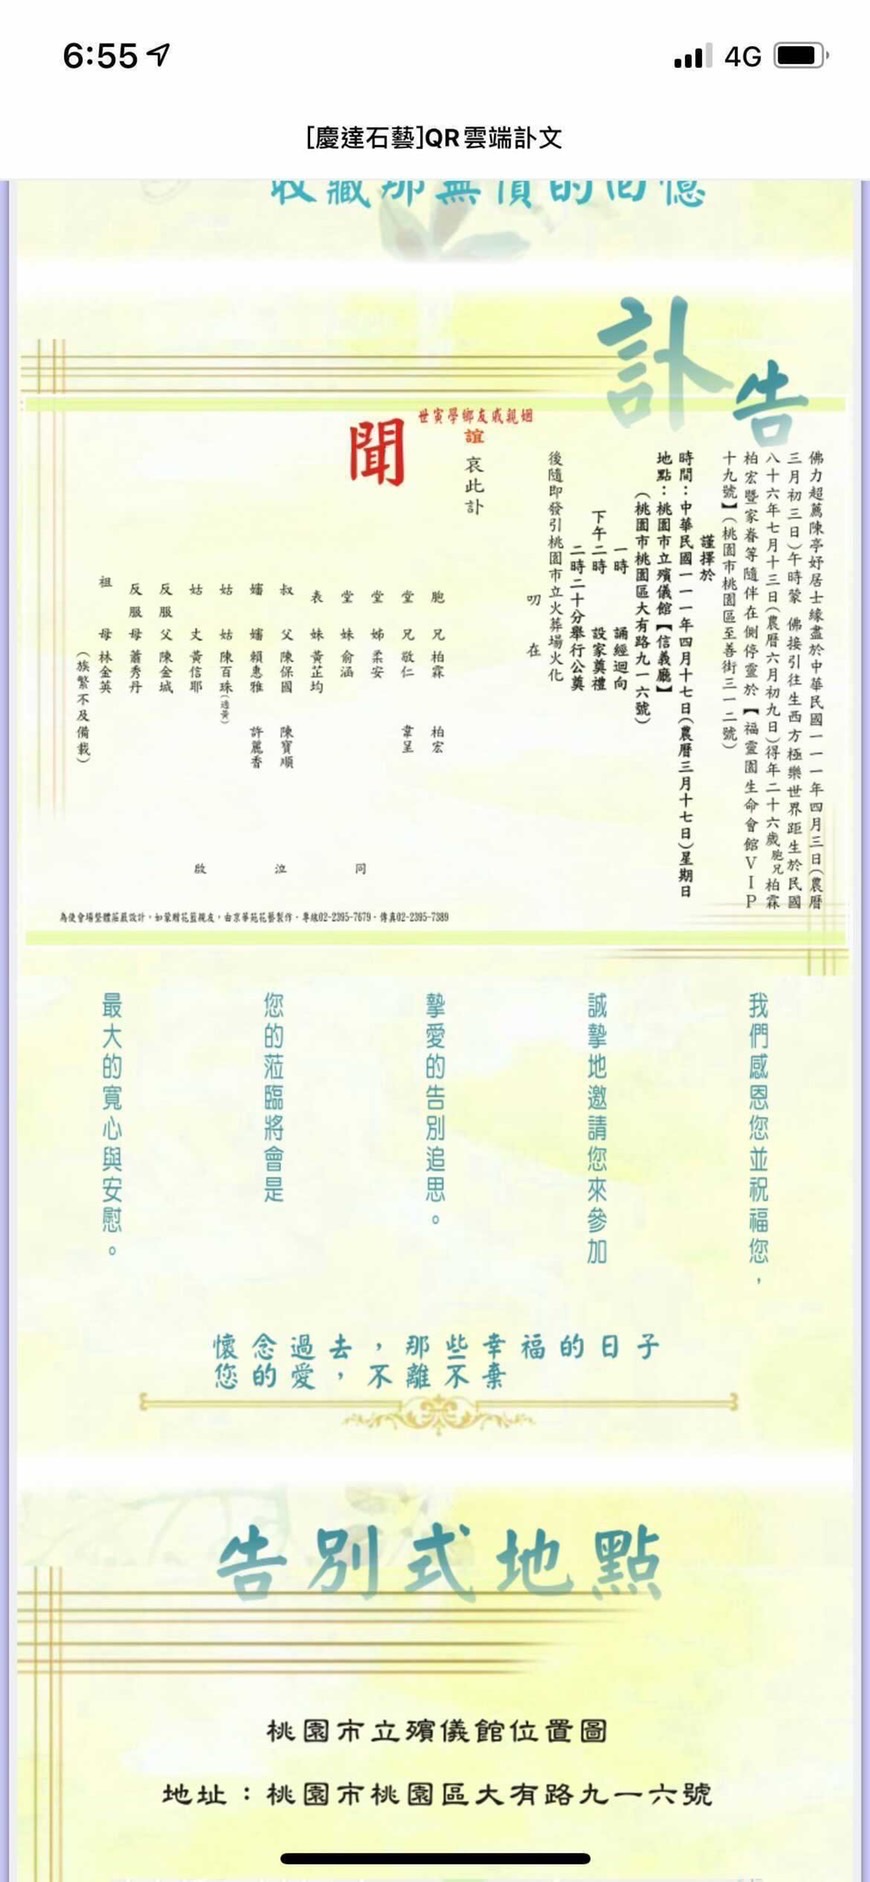 6:55
4G
[慶達石藝]QR雲端訃文
收藏那無價的回憶
訃告
佛力超薦陳亭妤居士緣盡於中華民國一一一年四月三日(農曆
三月初三日)午時蒙 佛接引往生西方極樂世界距生於民國
八十六年七月十三日(農曆六月初九日)得年二十六歲胞兄柏霖
柏宏暨家眷等隨伴在側停靈於【福靈園生命會館VIP
十九號】(桃園市桃園區至善街三一二號)
謹擇於
時間:中華民國一一一年四月十七日(農曆三月十七日)星期日
地點:桃園市立殯儀館【信義廳】
(桃園市桃園區大有路九一六號)
一時 誦經迴向
下午二時 設家奠禮
二時二十分舉行公奠
後隨即發引桃園市立火葬場火化
叨在
世寅學鄉友戚親姻
誼
哀此訃
聞
胞兄 柏霖 柏宏
堂兄 敬仁 韋呈
堂姊 柔安
堂妹 俞涵
表妹 黃芷均
叔父 陳保國 陳寶順
嬸嬸 賴惠雅 許麗香
姑姑 陳百珠(適黃)
姑丈 黃信耶
反服父 陳金城
反服母 蕭秀丹
祖母 林金英
(族繁不及備載)
同泣啟
為使會場整體莊嚴設計,如蒙贈花籃親友,由京華苑花藝製作,專線02-2395-7679,傳真02-2395-7389
我們感恩您並祝福您,
誠摯地邀請您來參加
摯愛的告別追思。
您的蒞臨將會是
最大的寬心與安慰。
懷念過去,那些幸福的日子
您的愛,不離不棄
告別式地點
桃園市立殯儀館位置圖
地址:桃園市桃園區大有路九一六號